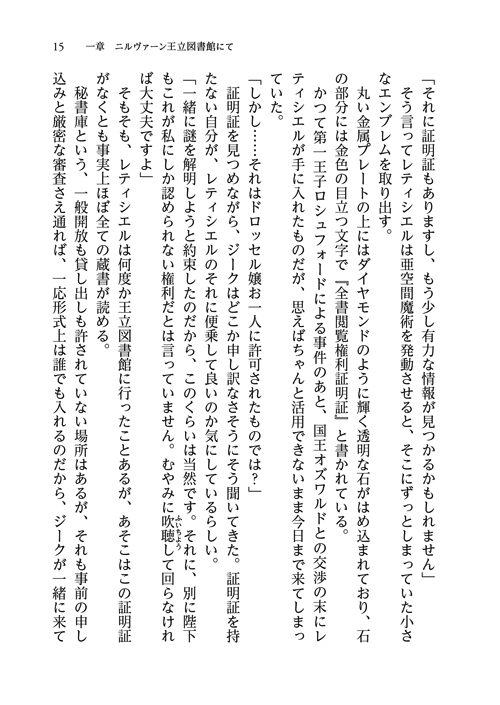 15　一章　ニルヴァーン王立図書館にて
「それに証明証もありますし、もう少し有力な情報が見つかるかもしれません」
　そう言ってレティシエルは亜空間魔術を発動させると、そこにずっとしまっていた小さ
なエンブレムを取り出す。
　丸い金属プレートの上にはダイヤモンドのように輝く透明な石がはめ込まれており、石
の部分には金色の目立つ文字で『全書閲覧権利証明証』と書かれている。
　かつて第一王子ロシュフォードによる事件のあと、国王オズワルドとの交渉の末にレ
ティシエルが手に入れたものだが、思えばちゃんと活用できないまま今日まで来てしまっ
ていた。
「しかし……それはドロッセル嬢お一人に許可されたものでは？」
　証明証を見つめながら、ジークはどこか申し訳なさそうにそう聞いてきた。証明証を持
たない自分が、レティシエルのそれに便乗して良いのか気にしているらしい。
「一緒に謎を解明しようと約束したのだから、このくらいは当然です。それに、別に陛下
もこれが私にしか認められない権利だとは言っていません。むやみに吹聴して回らなけれ
ば大丈夫ですよ」
　そもそも、レティシエルは何度か王立図書館に行ったことあるが、あそこはこの証明証
がなくとも事実上ほぼ全ての蔵書が読める。
　秘書庫という、一般開放も貸し出しも許されていない場所はあるが、それも事前の申し
込みと厳密な審査さえ通れば、一応形式上は誰でも入れるのだから、ジークが一緒に来て